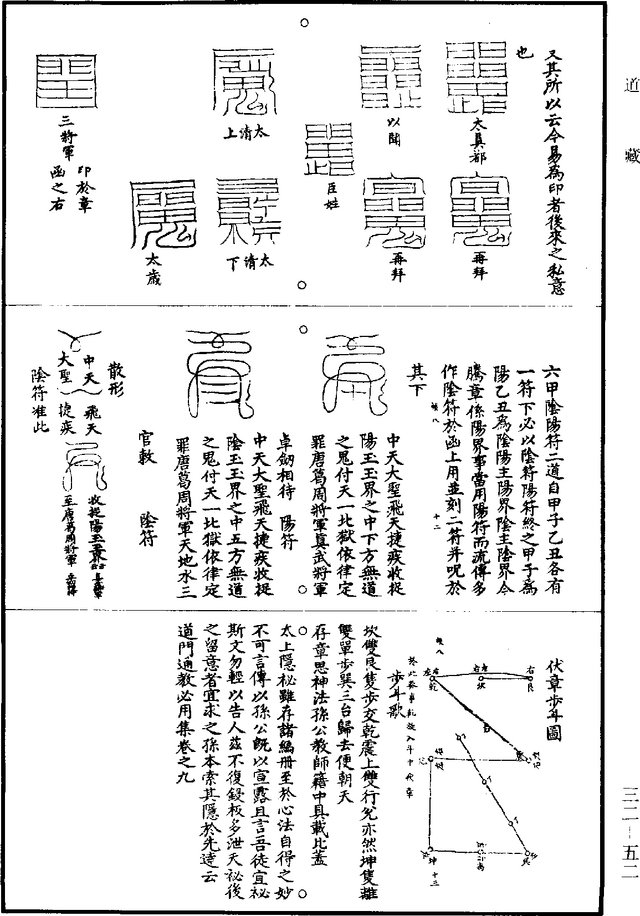 道藏
又其所以云今易為印者後來之私意
也
太真都
以聞
臣姓
再拜
再拜
太清上
太清下
太歲
三將軍
印於章
函之右
六甲陰陽符二道自甲子乙丑各有
一符下必以陰符陽符終之甲子為
陽乙丑為陰陽主陽界陰主陰界今
騰章係陽界事當用陽符而流傳多
作陰符於函上用並刻二符并呪於
其下
十二
中天大聖飛天捷疾收捉
陽玉玉界之中下方無道
之鬼付天一北獄依律定
罪唐葛周將軍真武將軍
卓劒相待
陽符
中天大聖飛天捷疾收捉
陰玉玉界之中五方無道
之鬼付天一北獄依律定
罪唐葛周將軍天地水三
官敕
陰符
散形
中天
大聖
飛天
捷疾
陰符准此
至唐葛周將軍
伏章步斗圖
右艮
坤
十三
步斗歌
坎雙艮隻步交乾震上雙行兌亦然坤隻離
雙單步巽三台歸去便朝天
存章思神法孫公教師籍中具載比蓋
太上隱祕雖存諸編冊至於心法自得之妙
不可言傳以孫公既以宣露且言吾徒宜祕
斯文勿輕以告人茲不復鋟板多泄天祕後
之留意者宜求之孫本索其隱於先達云
道門通教必用集卷之九
三二－五二